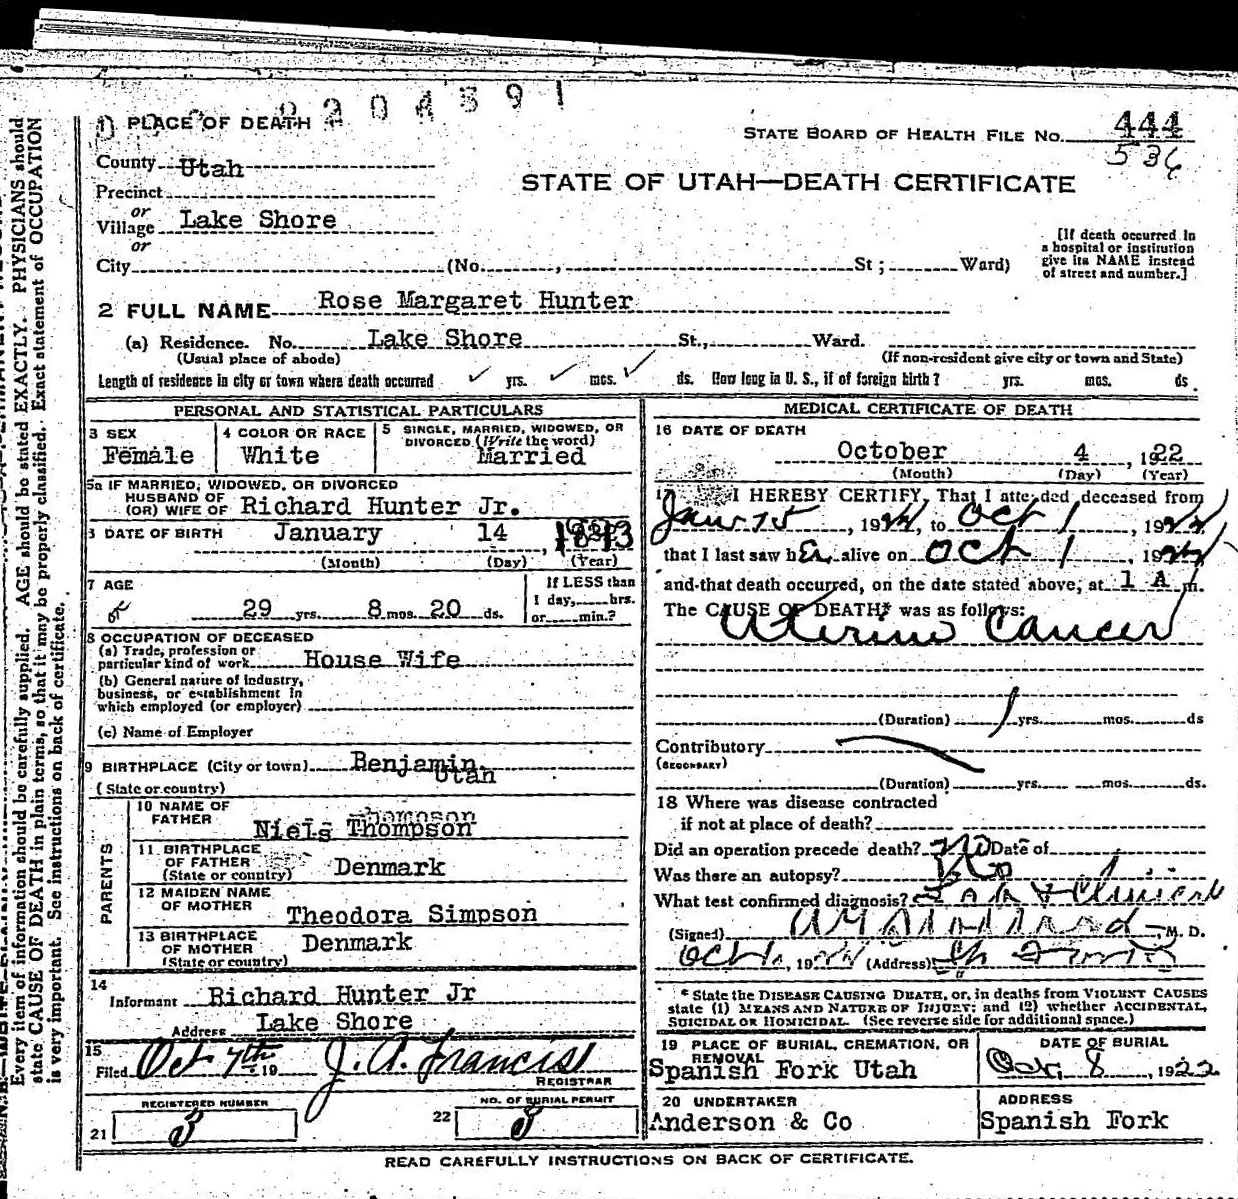 PLACE OF DEATH
STATE BOARD OF HEALTH FILE No. 444
536
County Utah
STATE OF UTAH—DEATH CERTIFICATE
Precinct
or
Village Lake Shore
or
City (No. , St ; Ward)
[If death occurred in
a hospital or institution
give its NAME instead
of street and number.]
2 FULL NAME Rose Margaret Hunter
(a) Residence. No. Lake Shore St., Ward.
(Usual place of abode) (If non-resident give city or town and State)
Length of residence in city or town where death occurred yrs. mos. ds. How long in U. S., if of foreign birth? yrs. mos. ds.
PERSONAL AND STATISTICAL PARTICULARS
3 SEX
Female
4 COLOR OR RACE
White
5 SINGLE, MARRIED, WIDOWED, OR
DIVORCED (Write the word)
Married
5a IF MARRIED, WIDOWED, OR DIVORCED
HUSBAND OF
(OR) WIFE OF Richard Hunter Jr.
DATE OF BIRTH January 14
(Month) (Day) (Year)
7 AGE
29 yrs. 8 mos. 20 ds.
If LESS than
1 day, hrs.
or min.?
8 OCCUPATION OF DECEASED
(a) Trade, profession or
particular kind of work House Wife
(b) General nature of industry,
business, or establishment in
which employed (or employer)
(c) Name of Employer
9 BIRTHPLACE (City or town) Benjamin
Utah
(State or country)
PARENTS
10 NAME OF
FATHER
Niels Thompson
11 BIRTHPLACE
OF FATHER
(State or country) Denmark
12 MAIDEN NAME
OF MOTHER
Theodora Simpson
13 BIRTHPLACE
OF MOTHER
(State or country) Denmark
14
Informant Richard Hunter Jr
Address Lake Shore
15
Filed Oct 7th 19 J. A. Francis
REGISTRAR
REGISTERED NUMBER
21 3
NO. OF BURIAL PERMIT
22 3
MEDICAL CERTIFICATE OF DEATH
16 DATE OF DEATH
October 4, 1922
(Month) (Day) (Year)
I HEREBY CERTIFY, That I attended deceased from
Jan 15, 1922, to Oct 1, 1922,
that I last saw her alive on Oct 1, 1922,
and that death occurred, on the date stated above, at 1 A m.
The CAUSE OF DEATH* was as follows:
Uterine Cancer
(Duration) 1 yrs. mos. ds
Contributory
(SECONDARY)
(Duration) yrs. mos. ds.
18 Where was disease contracted
if not at place of death?
Did an operation precede death? no Date of
Was there an autopsy? no
What test confirmed diagnosis? Lab & Clinical
(Signed) M. D.
Oct , 1922 (Address) Sp Fork
* State the DISEASE CAUSING DEATH, or, in deaths from VIOLENT CAUSES
state (1) MEANS AND NATURE OF INJURY; and (2) whether ACCIDENTAL,
SUICIDAL or HOMICIDAL. (See reverse side for additional space.)
19 PLACE OF BURIAL, CREMATION, OR
REMOVAL
Spanish Fork Utah
DATE OF BURIAL
Oct. 8, 1922
20 UNDERTAKER
Anderson & Co
ADDRESS
Spanish Fork
READ CAREFULLY INSTRUCTIONS ON BACK OF CERTIFICATE.
Every item of information should be carefully supplied. AGE should be stated EXACTLY. PHYSICIANS should
state CAUSE OF DEATH in plain terms, so that it may be properly classified. Exact statement of OCCUPATION
is very important. See instructions on back of certificate.